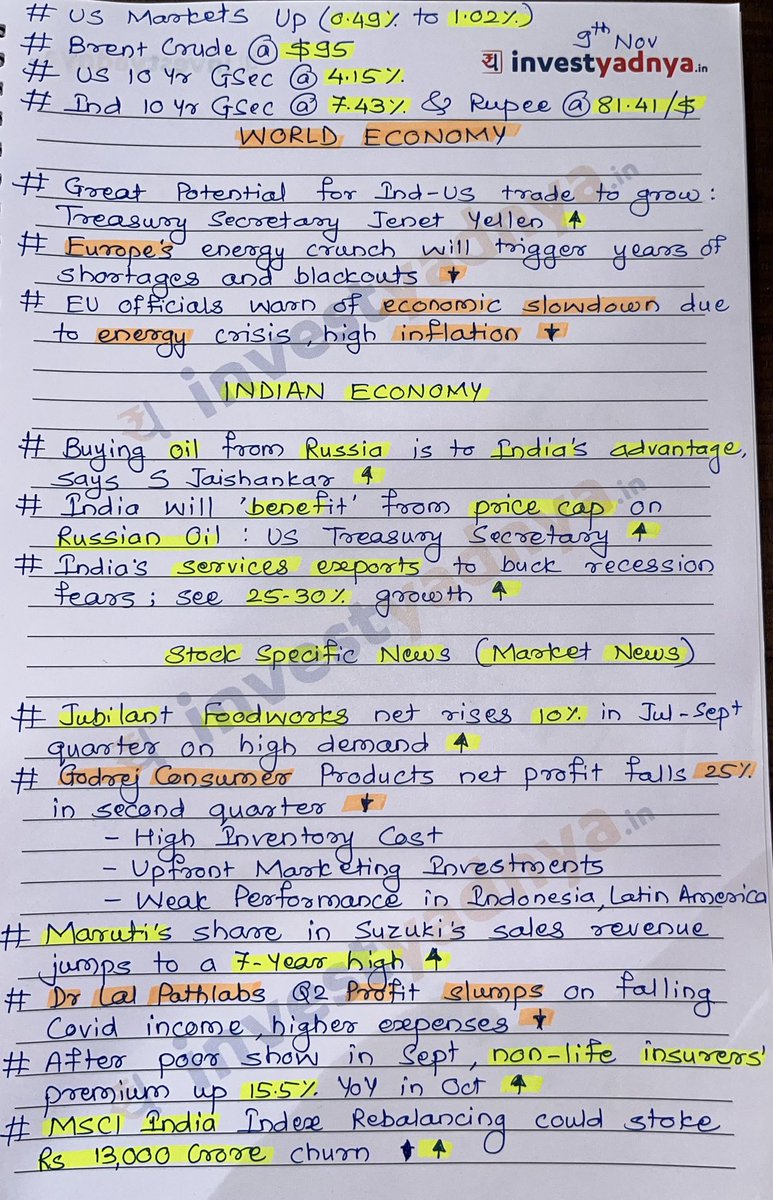 # US Markets Up (0.49% to 1.02%)
9th Nov
# Brent Crude @ $95
य investyadnya.in
# US 10 yr GSec @ 4.15%
# Ind 10 yr GSec @ 7.43% & Rupee @ 81.41/$
WORLD ECONOMY
# Great Potential for Ind-US trade to grow:
Treasury Secretary Jenet Yellen ↑
# Europe's energy crunch will trigger years of
shortages and blackouts ↓
# EU officials warn of economic slowdown due
to energy crisis, high inflation ↓
INDIAN ECONOMY
# Buying oil from Russia is to India's advantage,
says S Jaishankar ↑
# India will 'benefit' from price cap on
Russian Oil : US Treasury Secretary ↑
# India's services exports to buck recession
fears; see 25-30% growth ↑
Stock Specific News (Market News)
# Jubilant Foodworks net rises 10% in Jul-Sept
quarter on high demand ↑
# Godrej Consumer Products net profit falls 25%
in second quarter ↓
- High Inventory Cost
- Upfront Marketing Investments
- Weak Performance in Indonesia, Latin America
# Maruti's share in Suzuki's sales revenue
jumps to a 7-Year high ↑
# Dr Lal Pathlabs Q2 Profit slumps on falling
Covid income, higher expenses ↓
# After poor show in Sept, non-life insurers'
premium up 15.5% YoY in Oct ↑
# MSCI India Index Rebalancing could stoke
Rs 13,000 Crore churn ↓ ↑
य investyadnya.in
य investyadnya.in
य investyadnya.in
य investyadnya.in